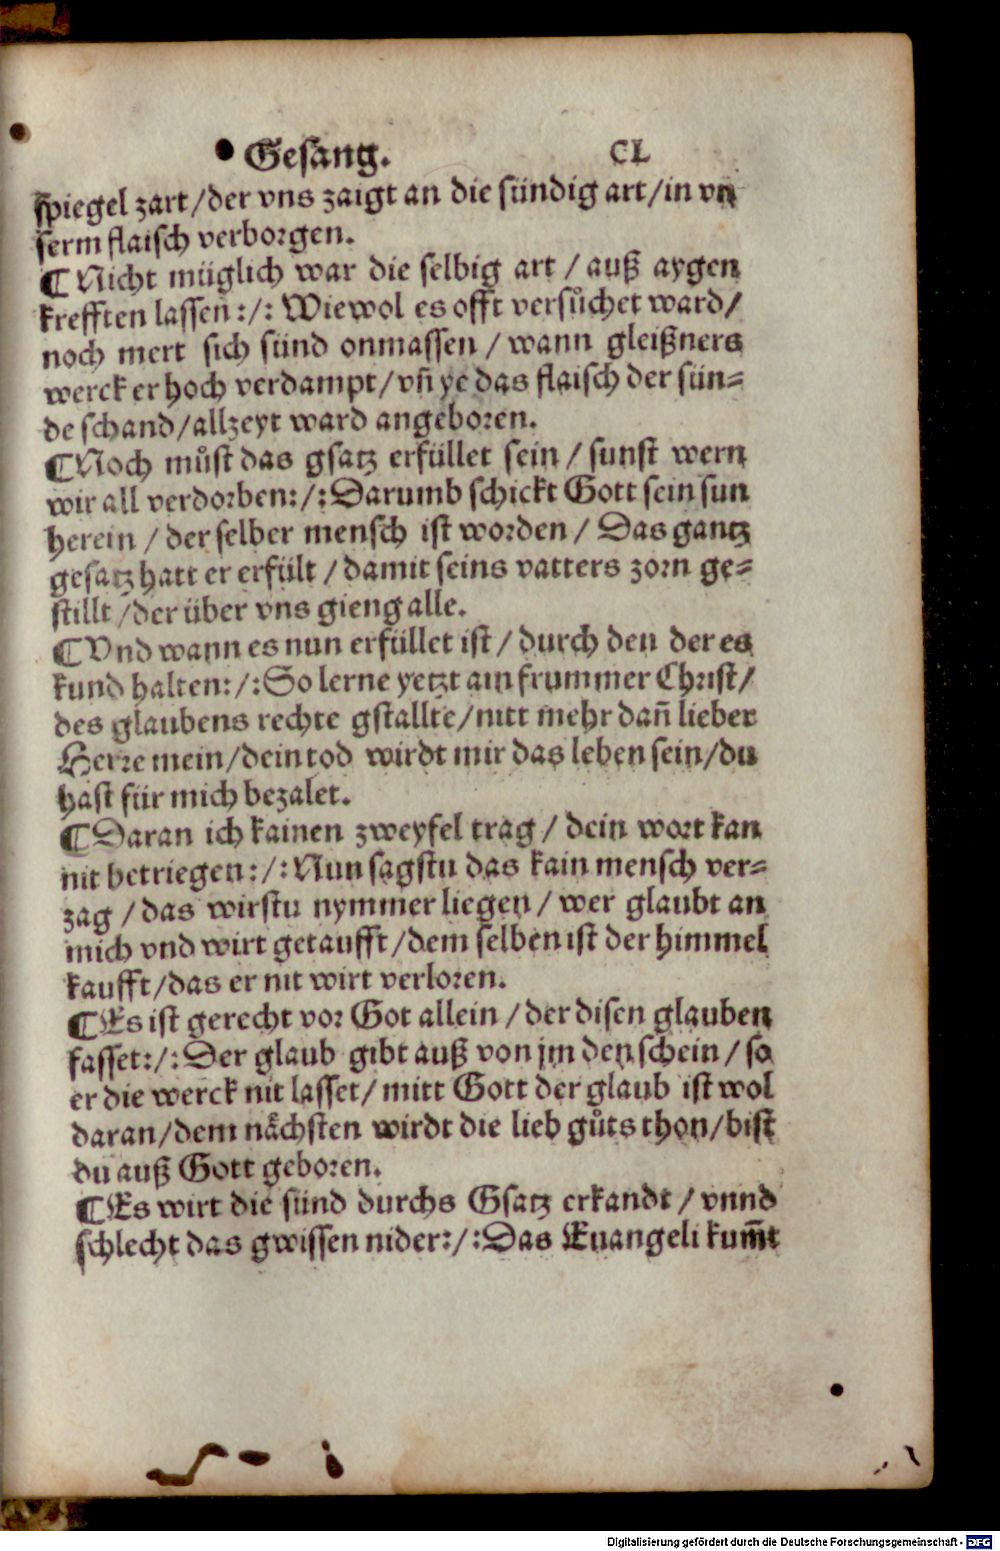 Gesang. CL
spiegel zart/der vns zaigt an die sündig art/in vn
serm flaisch verborgen.
¶Nicht müglich war die selbig art / auß aygen
krefften lassen:/: Wiewol es offt versůchet ward/
noch mert sich sünd onmassen / wann gleißners
werck er hoch verdampt/vñ ye das flaisch der sün⸗
de schand/allzeyt ward angeboren.
¶Noch můst das gsatz erfüllet sein / sunst wern
wir all verdorben:/:Darumb schickt Gott sein sun
herein / der selber mensch ist worden / Das gantz
gesatz hatt er erfült / damit seins vatters zorn ge⸗
stillt /der über vns gieng alle.
¶Vnd wann es nun erfüllet ist / durch den der es
kund halten:/:So lerne yetzt ain frummer Christ/
des glaubens rechte gstallte/nitt mehr dañ lieber
Herre mein/dein tod wirdt mir das leben sein/du
hast für mich bezalet.
¶Daran ich kainen zweyfel trag / dein wort kan
nit betriegen:/:Nun sagstu das kain mensch ver⸗
zag /das wirstu nymmer liegen / wer glaubt an
mich vnd wirt getaufft/dem selben ist der himmel
kaufft/das er nit wirt verloren.
¶Es ist gerecht vor Got allein /der disen glauben
fasset:/:Der glaub gibt auß von jm den schein / so
er die werck nit lasset/ mitt Gott der glaub ist wol
daran/dem nächsten wirdt die lieb gůts thon/bist
du auß Gott geboren.
¶Es wirt die sünd durchs Gsatz erkandt / vnnd
schlecht das gwissen nider:/:Das Euangeli kum̃t
Digitalisierung gefördert durch die Deutsche Forschungsgemeinschaft - DFG